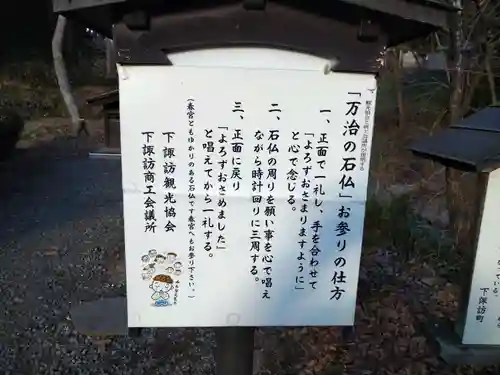 「万治の石仏」お参りの仕方
一、正面で一礼し、手を合わせて
「よろずおさまりますように」
と心で念じる。
二、石仏の周りを願い事を心で唱え
ながら時計回りに三周する。
三、正面に戻り
「よろずおさめました」
と唱えてから一礼する。
(春宮とゆかりのある石仏です春宮へもお参り下さい。)
下諏訪観光協会
下諏訪商工会議所
下諏訪町